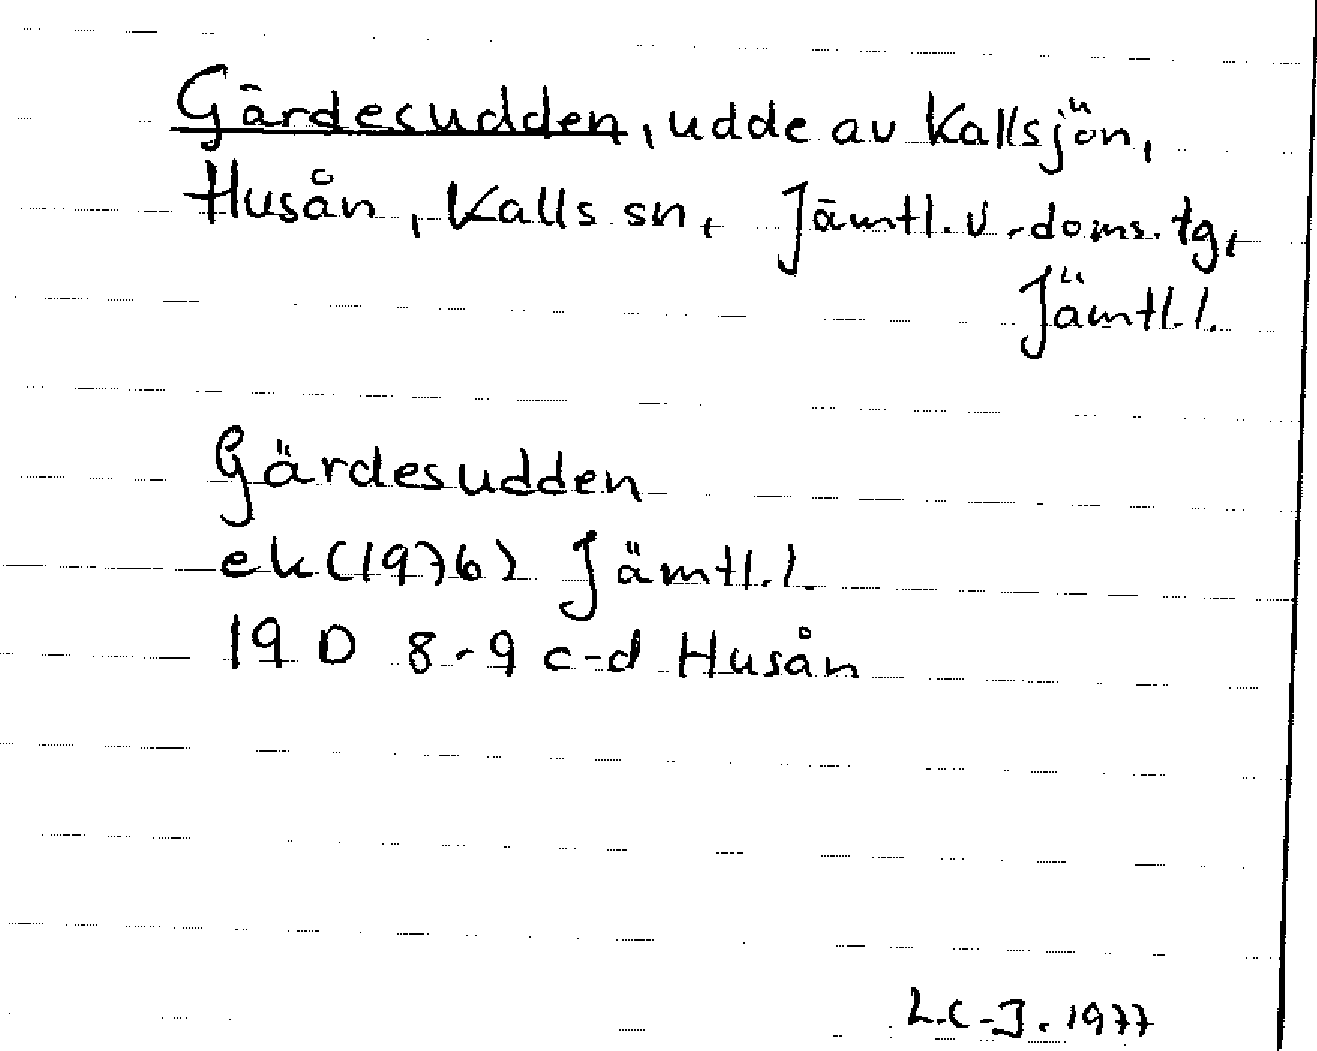 Gärdesudden, udde av Kallsjön,
Husån, Kalls sn, Jämtl. v. doms. tg,
Jämtl. l.
Gärdesudden
ek (1976) Jämtl. l.
19 D 8-9 c-d Husån
L.C-J. 1977